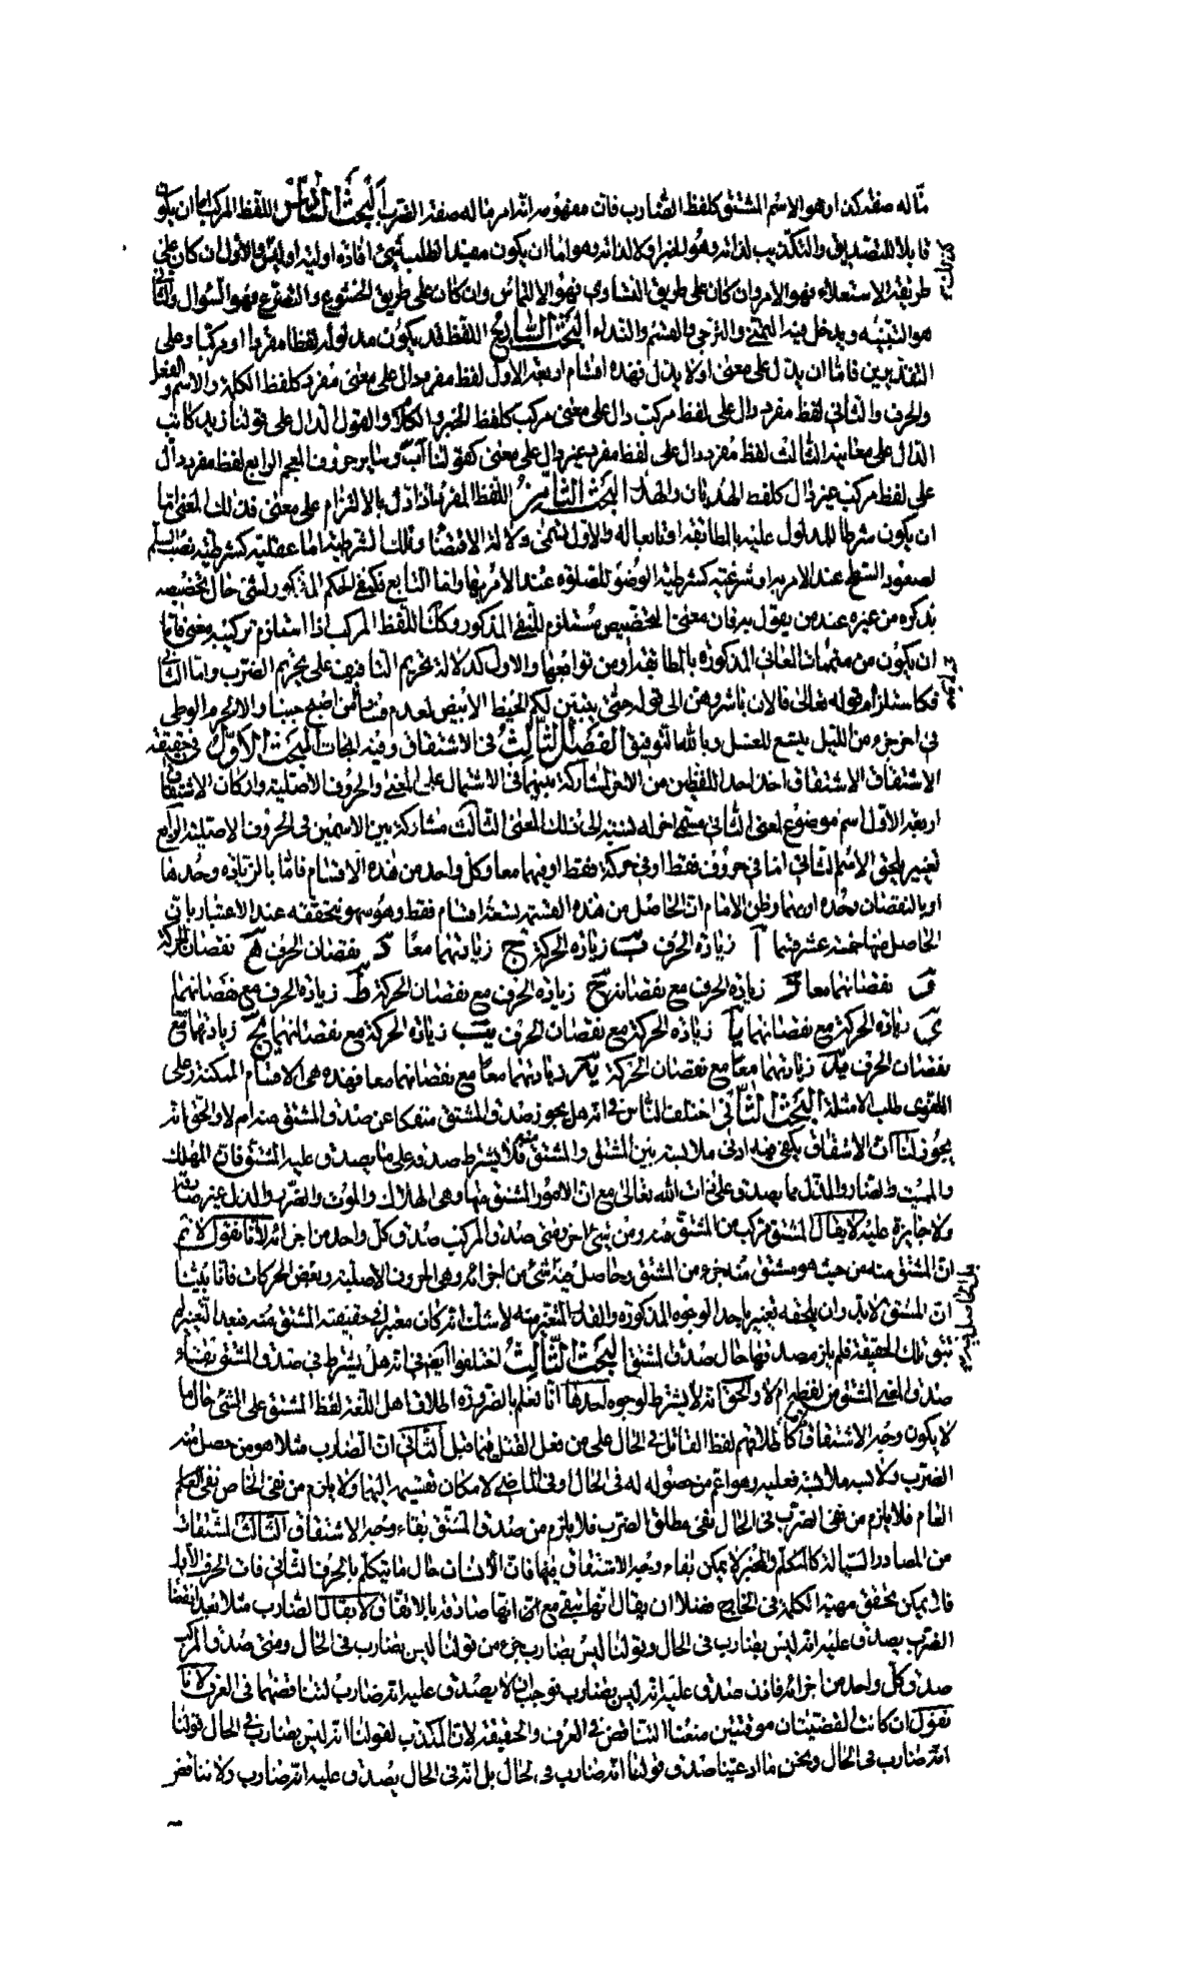 ما له صفة كذا وهو الاسم المشتق كلفظ الضارب فان مفهومه انه امر ما له صفة الضرب البحث السادس اللفظ المركب اما ان يكون
قابلا للتصديق والتكذيب لذاته وهو الخبر او لا لذاته وهو اما ان يكون مفيدا لطلب شيء افادة اولية او ليس والاول ان كان على
طريقة الاستعلاء فهو الامر وان كان على طريق التساوي فهو الالتماس وان كان على طريق الخشوع والتضرع فهو السؤال والثاني
هو التنبيه ويدخل فيه التمني والترجي والقسم والنداء البحث السابع اللفظ قد يكون مدلوله لفظا مفردا او مركبا وعلى
التقديرين فاما ان يدل على معنى او لا يدل فهذه اقسام اربعة الاول لفظ مفرد دال على معنى مفرد كلفظ الكلمة والاسم والفعل
والحرف والثاني لفظ مفرد دال على لفظ مركب دال على معنى مركب كلفظ الخبر والكلام والقول الدال على قولنا زيد كاتب
الدال على معانيه الثالث لفظ مفرد دال على لفظ مفرد غير دال على معنى كقولنا آ ب وساير حروف المعجم الرابع لفظ مفرد دال
على لفظ مركب غير دال كلفظ الهذيان والهذر البحث الثامن اللفظ المفرد اذا دل بالالتزام على معنى فذلك المعنى اما
ان يكون شرطا للمدلول عليه بالمطابقة او تابعا له والاول تسمى دلالة الاقتضا وتلك الشرطية اما عقلية كشرطية نصب السلم
لصعود السطح عند الامر به او شرعية كشرطية الوضوء للصلوة عند الامر بها واما التابع فكنفي الحكم المذكور لشئ حال تخصيصه
بذكره من غيره عند من يقول به فان معنى التخصيص مستلزم للنفي المذكور وكذا اللفظ المركب اذا استلزم تركيبه معنى فاما
ان يكون من متممات المعاني المذكورة بالمطابقة او من توابعها والاول كدلالة تحريم التافيف على تحريم الضرب واما الثاني
فكاستلزام قوله تعالى فالان باشروهن الى قوله حتى يتبين لكم الخيط الابيض لعدم فساد من اصبح جنبا والا لحرم الوطي
في اخر جزء من الليل يتسع للغسل وبالله التوفيق الفصل الثالث في الاشتقاق وفيه ابحاث البحث الاول في حقيقة
الاشتقاق الاشتقاق اخذ احد اللفظين من الاخر لمشاركة بينهما في الاشتمال على المعنى والحروف الاصلية واركان الاشتقاق
اربعة الاول اسم موضوع لمعنى الثاني مسمى اخر له نسبة الى ذلك المعنى الثالث مشاركة بين الاسمين في الحروف الاصلية الرابع
تغيير يلحق الاسم الثاني اما في حروف فقط او في حركة فقط او فيهما معا وكل واحد من هذه الاقسام فاما بالزيادة وحدها
او بالنقصان وحده او بهما وظن الامام ان الحاصل من هذه القسمة تسعة اقسام فقط وهو سهو تحققه عند الاعتبار بان
الحاصل منها خمسة عشر قسما آ زيادة الحرف ب زيادة الحركة ج زيادتهما معا د نقصان الحرف ه نقصان الحركة
و نقصانهما معا ز زيادة الحرف مع نقصانه ح زيادة الحرف مع نقصان الحركة ط زيادة الحرف مع نقصانهما
ى زيادة الحركة مع نقصانها يا زيادة الحركة مع نقصان الحرف يب زيادة الحركة مع نقصانهما يج زيادتهما مع
نقصان الحرف يد زيادتهما معا مع نقصان الحركة يه زيادتهما معا مع نقصانهما معا فهذه هي الاقسام الممكنة وعلى
اللغوي طلب الامثلة البحث الثاني اختلف الناس في انه هل يجوز صدق المشتق منفكا عن صدق المشتق منه ام لا والحق انه
يجوز لنا ان الاشتقاق يكفي فيه ادنى ملابسة بين المشتق والمشتق منه فلا يشترط صدقه على ما يصدق عليه المشتق فان المهلك
والمميت والضار والمذل مما يصدق على ذات الله تعالى مع ان الامور المشتق منها وهي الهلاك والموت والضر والذل غير صادقة
ولا جايزة عليه لا يقال المشتق مركب من المشتق منه ومن شيء اخر ومتى صدق المركب صدق كل واحد من اجزائه لانا نقول لا نم
ان المشتق منه من حيث هو مشتق منه جزء من المشتق وحاصل فيه شئ من اجزائه وهي الحروف الاصلية وبعض الحركات فانا بينا
ان المشتق لابد وان يلحقه تغيير باحد الوجوه المذكورة والقدر المتغير منه لا شك انه كان معتبرا في حقيقة المشتق منه فبعد التغير لم
تبق تلك الحقيقة فلم يلزم صدقها حال صدق المشتق البحث الثالث اختلفوا ايضا في انه هل يشترط في صدق المشتق بقاء
صدق المعنى المشتق من لفظه ام لا والحق انه لا يشترط لوجوه احدها انا نعلم بالضرورة اطلاق اهل اللغة لفظ المشتق على الشئ حال ما
لا يكون وجه الاشتقاق كاطلاقهم لفظ القاتل في الحال على من فعل القتل فيما قبل الثاني ان الضارب مثلا هو من حصل منه
الضرب ولابسه ملابسة فعلية وهو اعم من حصوله له في الحال او في الماضي لامكان تقسيمه اليهما ولا يلزم من نفي الخاص نفي العام
العام فلا يلزم من نفي الضرب في الحال نفي مطلق الضرب فلا يلزم من صدق المشتق بقاء وجه الاشتقاق الثالث المشتقات
من المصادر السيالة كالمتكلم والمخبر لا يمكن بقاء وجه الاشتقاق فيها فان الانسان حال ما يتكلم بالحرف الثاني فات الحرف الاول
فلا يمكن تحقق مهية الكلمة في الخارج فضلا ان يقال انها تبقى مع انها صادقة بالاتفاق لا يقال الضارب مثلا بعد انقضا
الضرب يصدق عليه انه ليس بضارب في الحال وقولنا ليس بضارب جزء من قولنا ليس بضارب في الحال ومتى صدق المركب
صدق كل واحد من اجزائه فاذن صدق عليه انه ليس بضارب فوجب ان لا يصدق عليه انه ضارب لتناقضهما في العرف لانا
نقول ان كانت القضيتان موقتتين منعنا التناقض في العرف والحقيقة لان المكذب لقولنا انه ليس بضارب في الحال قولنا
انه ضارب في الحال ونحن ما ادعينا صدق قولنا انه ضارب في الحال بل انه في الحال يصدق عليه انه ضارب ولا تناقض